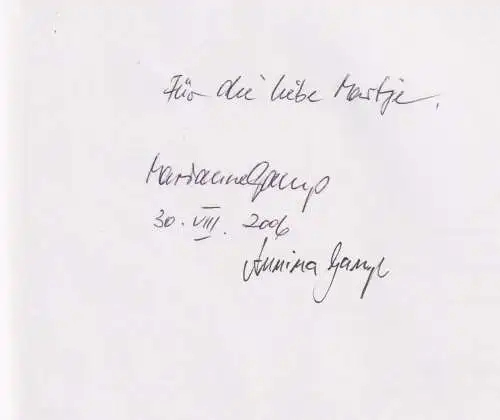 Für die liebe Martje.
Marianne Gamp
30. VIII. 2006
Annina Gamp